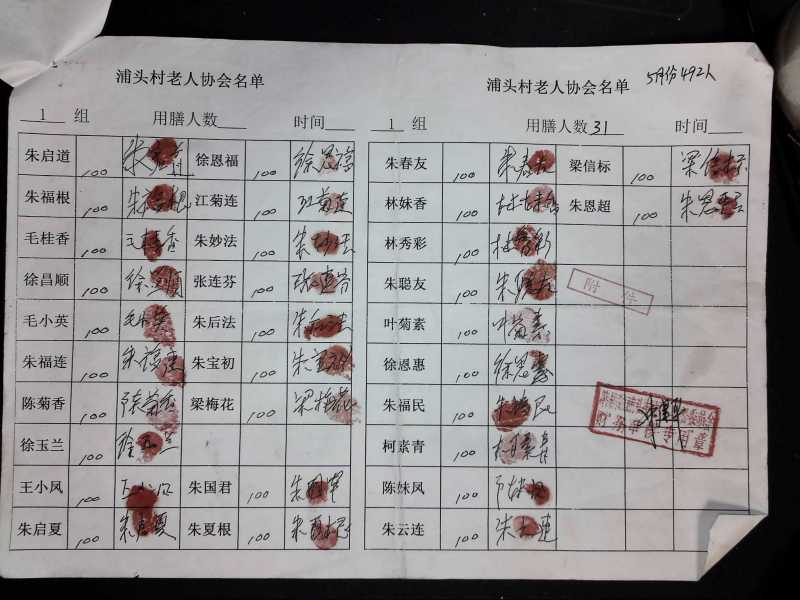 浦头村老人协会名单
1 组 用膳人数 时间
朱启道 100 朱启道 徐恩福 100 徐恩福
朱福根 100 朱福根 江菊连 100 江菊连
毛桂香 100 毛桂香 朱妙法 100 朱妙法
徐昌顺 100 徐昌顺 张连芬 100 张连芬
毛小英 100 毛小英 朱后法 100 朱后法
朱福连 100 朱福连 朱宝初 100 朱宝初
陈菊香 100 陈菊香 梁梅花 100 梁梅花
徐玉兰 100 徐玉兰
王小凤 100 王小凤 朱国君 100 朱国军
朱启夏 100 朱启夏 朱夏根 100 朱夏根
浦头村老人协会名单 5月份492人
1 组 用膳人数 31 时间
朱春友 100 朱春友 梁信标 100 梁信标
林妹香 100 林妹香 朱恩超 100 朱恩超
林秀彩 100 林秀彩
朱聪友 100 朱聪友
附件
叶菊素 100 叶菊素
徐恩惠 100 徐恩惠
朱福民 100 朱福民
柯素青 100
陈妹凤 100
朱云连 100 朱云连